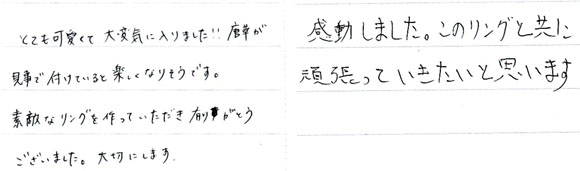 とても可愛くて大変気に入りました!! 唐草が
見事で付けていると楽しくなりそうです。
素敵なリングを作っていただき有りがとう
ございました。大切にします.
感動しました。このリングと共に
頑張っていきたいと思います